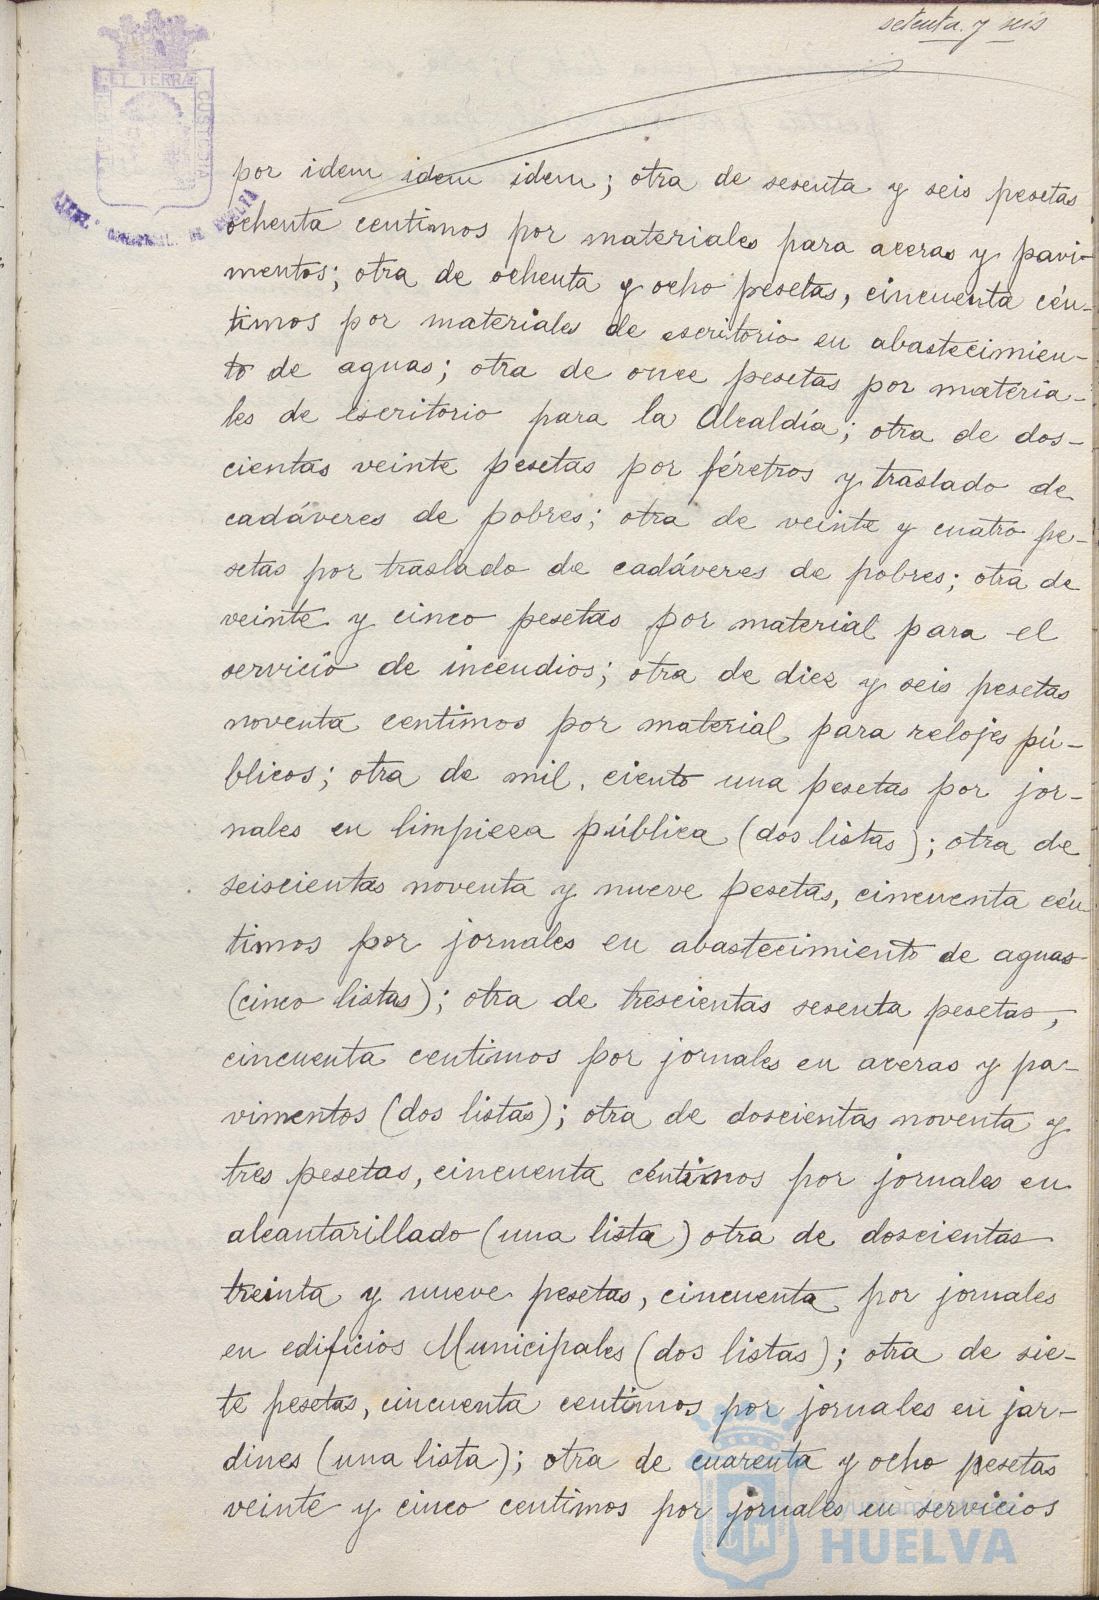 setenta y seis
ET TERRÆ
CUSTODIA
por idem idem idem; otra de sesenta y seis pesetas
ochenta centimos por materiales para aceras y pavi-
mentos; otra de ochenta y ocho pesetas, cincuenta cén-
timos por materiales de escritorio en abastecimien-
to de aguas; otra de once pesetas por materia-
les de escritorio para la Alcaldía; otra de dos-
cientas veinte pesetas por féretros y traslado de
cadáveres de pobres; otra de veinte y cuatro pe-
setas por traslado de cadáveres de pobres; otra de
veinte y cinco pesetas por material para el
servicio de incendios; otra de diez y seis pesetas
noventa centimos por material para relojes pú-
blicos; otra de mil, ciento una pesetas por jor-
nales en limpieza pública (dos listas); otra de
seiscientas noventa y nueve pesetas, cincuenta cén-
timos por jornales en abastecimiento de aguas
(cinco listas); otra de trescientas sesenta pesetas,
cincuenta centimos por jornales en aceras y pa-
vimentos (dos listas); otra de doscientas noventa y
tres pesetas, cincuenta céntimos por jornales en
alcantarillado (una lista) otra de doscientas
treinta y nueve pesetas, cincuenta por jornales
en edificios Municipales (dos listas); otra de sie-
te pesetas, cincuenta centimos por jornales en jar-
dines (una lista); otra de cuarenta y ocho pesetas
veinte y cinco centimos por jornales en servicios
Ayuntamiento
HUELVA